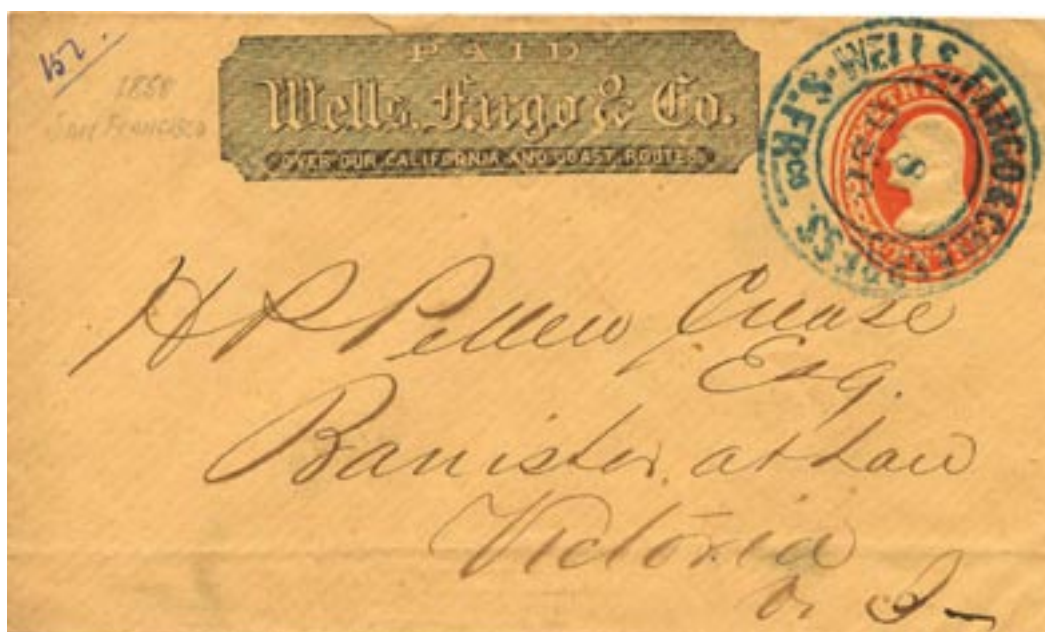 157.
1858
San Francisco
PAID
Wells, Fargo & Co.
OVER OUR CALIFORNIA AND COAST ROUTES.
WELLS, FARGO & CO. EXPRESS. S. FRCO
8
H P Pellew Crease
Esq.
Barrister at Law
Victoria
V. I.